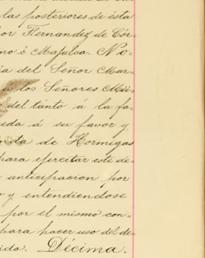 las posteriores de esta
or Fernandez de Cór
no é Mapulsa No
ia del Señor Mar
á los Señores
del tanto á la fa
ida á su favor y
de Hormigas
para ejercitar este de
anticipacion por
o y entendiendose
por el mismo con
para hacer uso del de
ido. Décima.